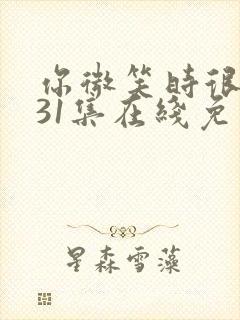 你微笑时很
31集在线免
星森雪藻